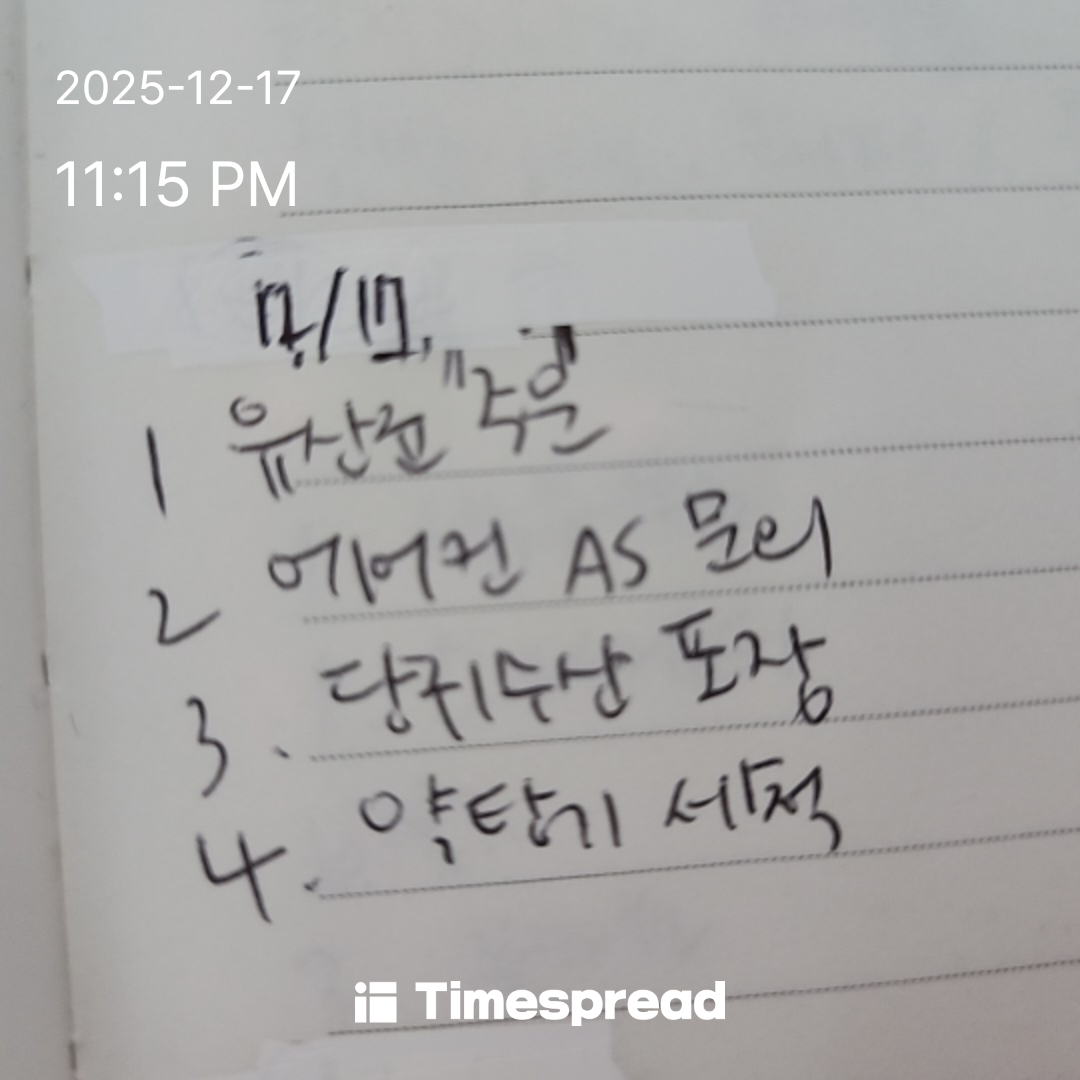 2025-12-17
11:15 PM
12/17.
1 유산균 주문
2 에어컨 AS 문의
3. 당귀수산 포장
4. 약탕기 세척
Timespread